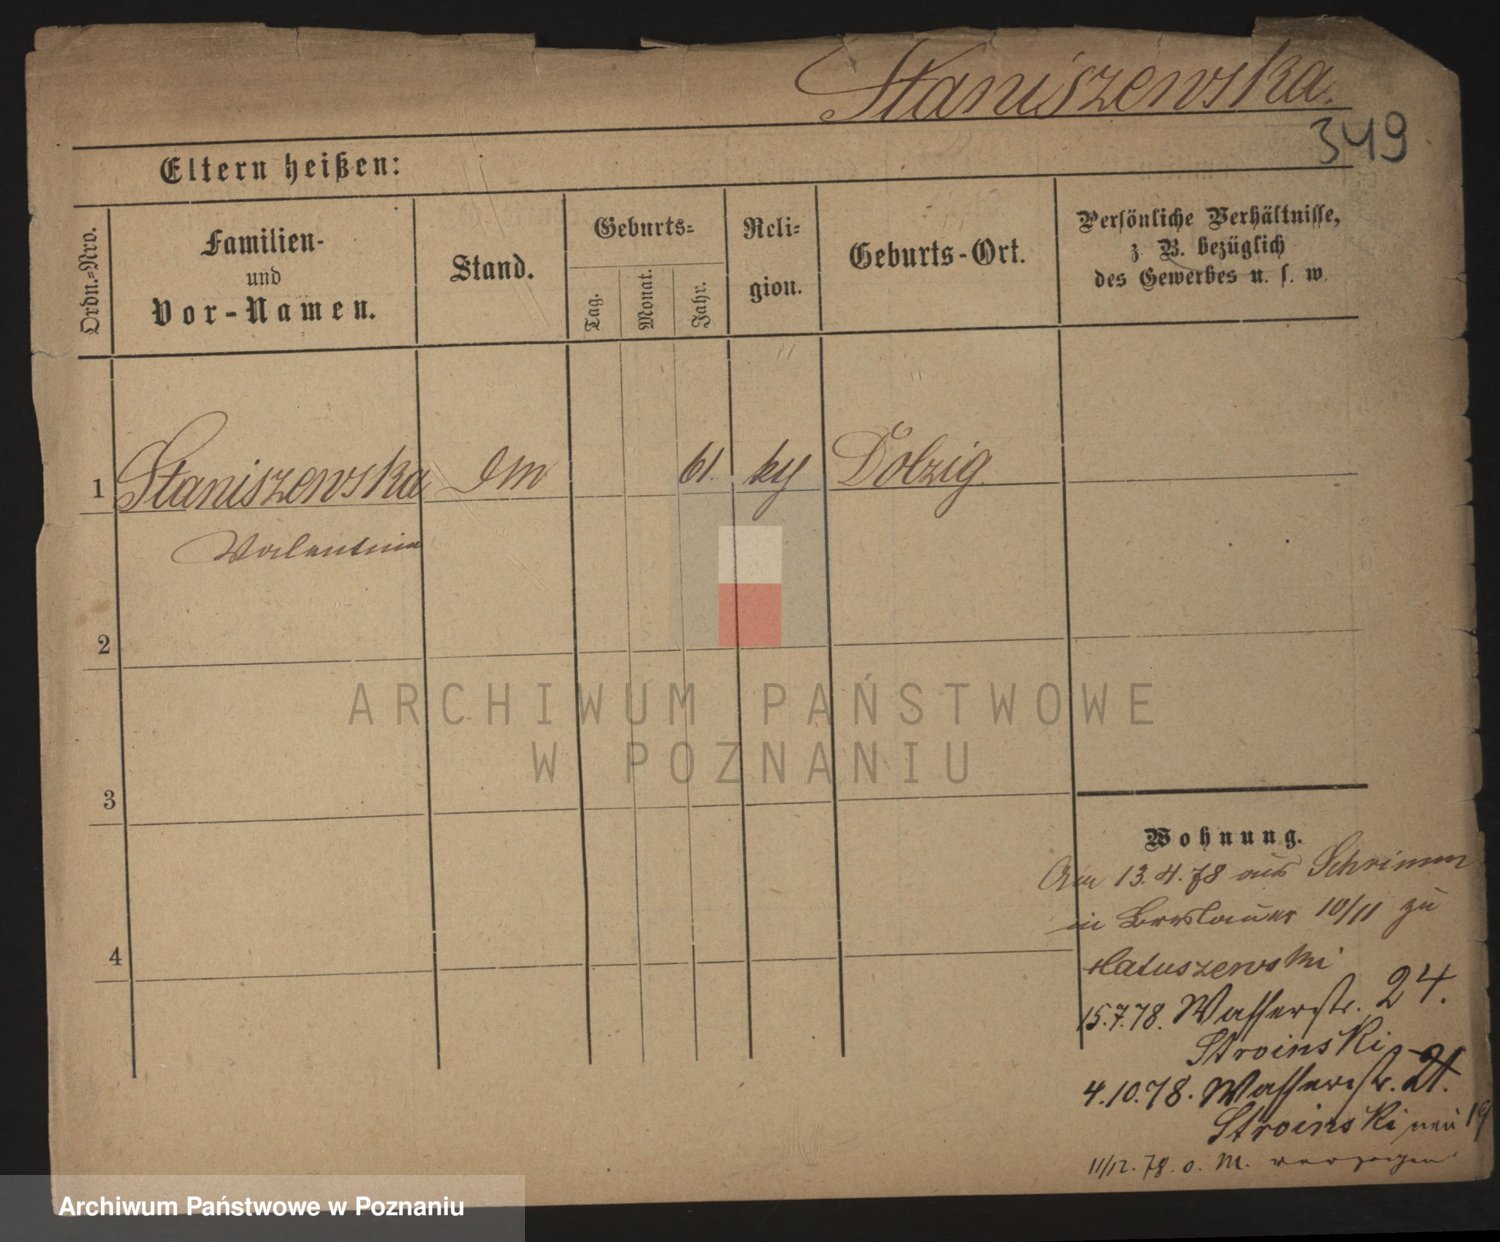 Staniszewska.
349
Eltern heißen:
Ordn.-Nro.
Familien-
und
Vor-Namen.
Stand.
Geburts-
Tag.
Monat.
Jahr.
Reli-
gion.
Geburts-Ort.
Persönliche Verhältnisse,
z B. bezüglich
des Gewerbes u. s. w.
1 Staniszewska DM 61. ky Dolzig
Valentina
2
3
4
Wohnung.
Am 13.4.78 aus Schrimm
in Breslauer 10/11 zu
15.7.78. Wasserstr. 24.
Stroinski
4.10.78. Wasserstr. 21.
Stroinski neu 19
11/12. 78. o. M. verzogen
ARCHIWUM PAŃSTWOWE
W POZNANIU
Archiwum Państwowe w Poznaniu